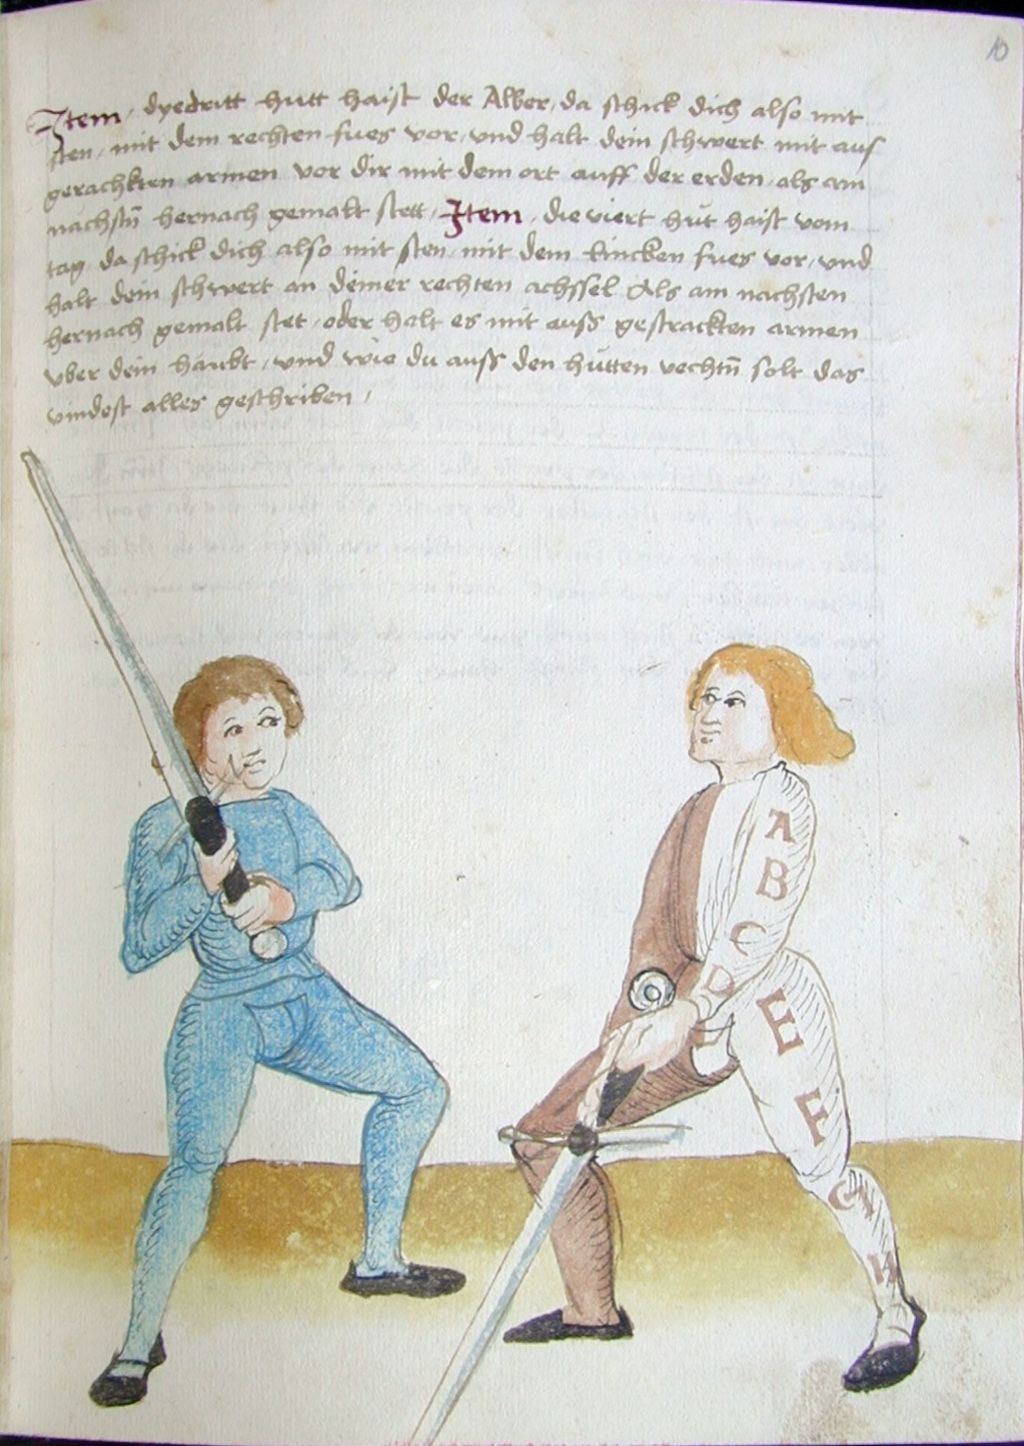 10
Item, dyedritt hutt haist der Alber, da schick dich also mit
sten, mit dem rechten fues vor, und halt dein schwert mit aus
gerachkten armen vor dir mit dem ort auff der erden, als am
nachstn̄ hernach gemalt stett, Item, die viert hůt haist vom
tag, da schick dich also mit sten, mit dem lincken fues vor, und
halt dein schwert an deiner rechten achssel Als am nachsten
hernach gemalt stet, oder halt es mit auss gestrackten armen
vber dein haubt, vnd wie du auss den hůtten vechtn̄ solt das
vindest alles geschriben,
A
B
C
D
E
F
G
H